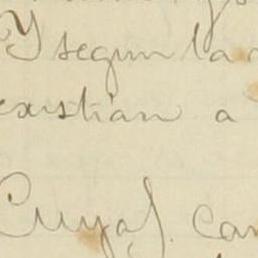 Y segun la
existian a
Cuyas can